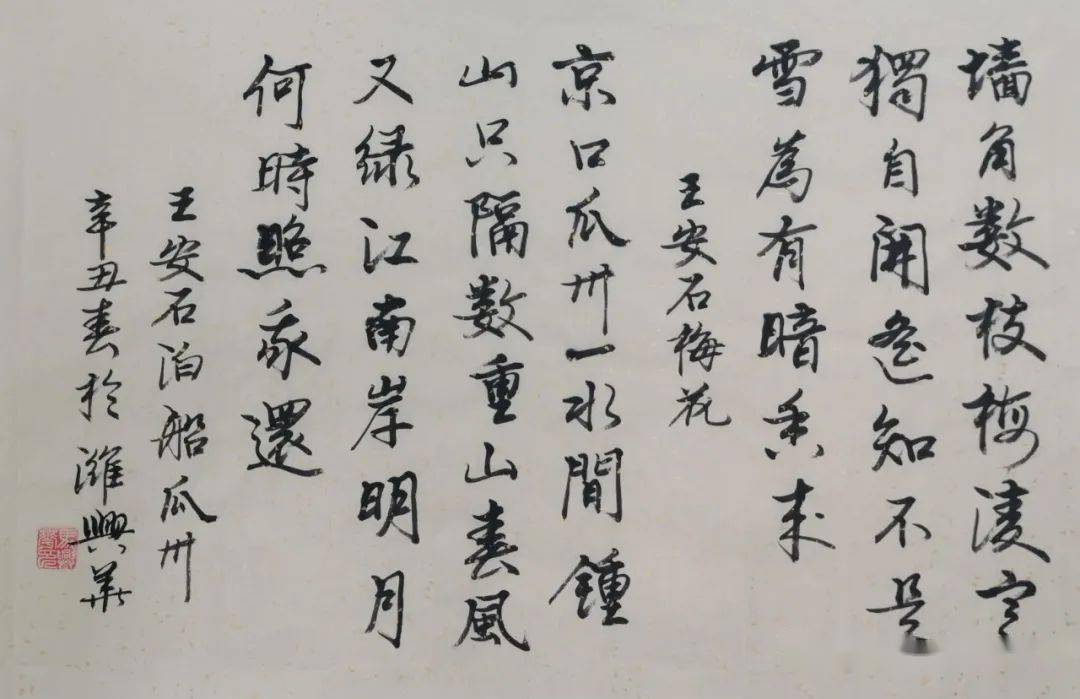 墙角数枝梅凌寒
獨自開遙知不是
雪為有暗香来
王安石梅花
京口瓜州一水間鍾
山只隔數重山春風
又绿江南岸明月
何時照我還
王安石泊船瓜州
辛丑春於濰興華